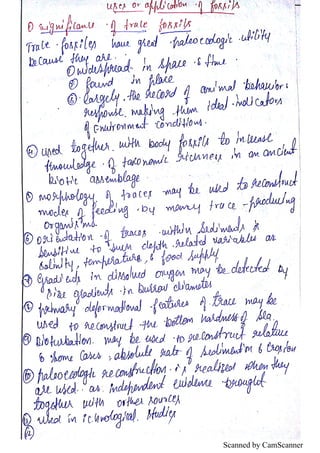 uses or application of fossils
① significance of trace fossils
Trace fossiles have great paleoecologic utility
because they are
① widespread in space & time.
② found in place
③ largely the record of animal behavior &
response making them ideal indicators
of environment conditions.
④ used together with body fossils to increase
knowledge of taxonomic richness in an ancient
biotic assemblage
⑤ morphology of traces may be used to reconstruct
modes of feeding by many trace-producing
organisms
⑥ orientation of traces within sediments is
sensitive to such depth related variables as
salinity, temperature & food supply
⑦ Gradients in dissolved oxygen may be detected by
size gradients in burrow diameter
⑧ primary deformational features of trace may be
used to reconstruct the bottom hardness of sea.
⑨ Bioturbation may be used to reconstruct relative
& some cases, absolute rate of sedimention & erosion
⑩ paleoecologic reconstruction is realized when they
are used as independent evidence brought
together with other sources
⑪ used in ichnological studies
⑫
Scanned by CamScanner